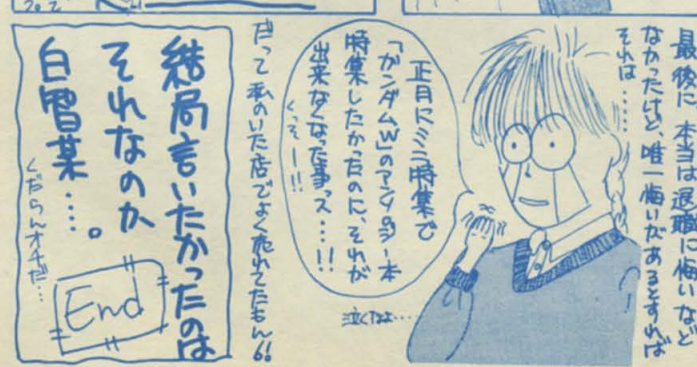 最後に本当は退職に悔いなど
なかったけど、唯一悔いがあるとすれば
それは……
正月にミニ特集で
「ガンダムW」のアンソロジー本
特集したかったのに、それが
出来なくなった事っス…!!
くっそー!!
泣くなよ…
だって私のいた店でよく売れてたもん!
結局言いたかったのは
それなのか
白智葉…。
くだらんオチだ…
End